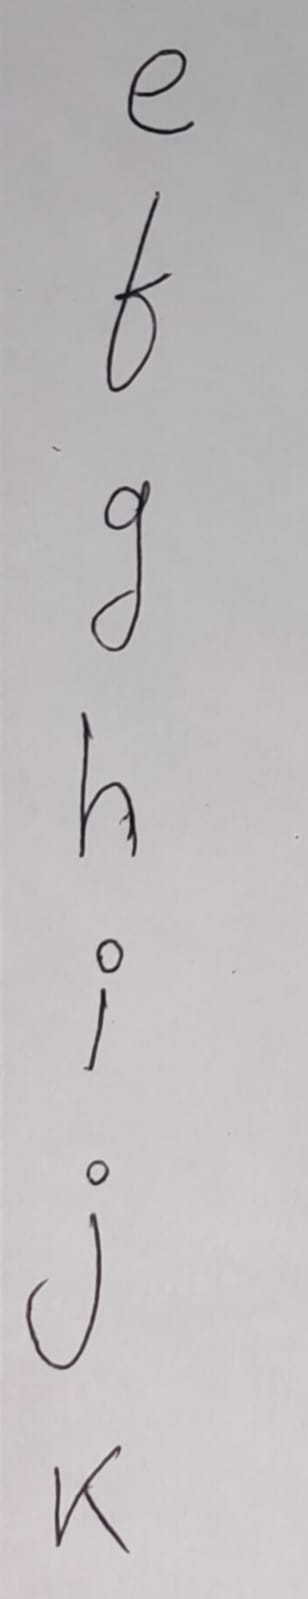 e
f
g
h
i
j
k